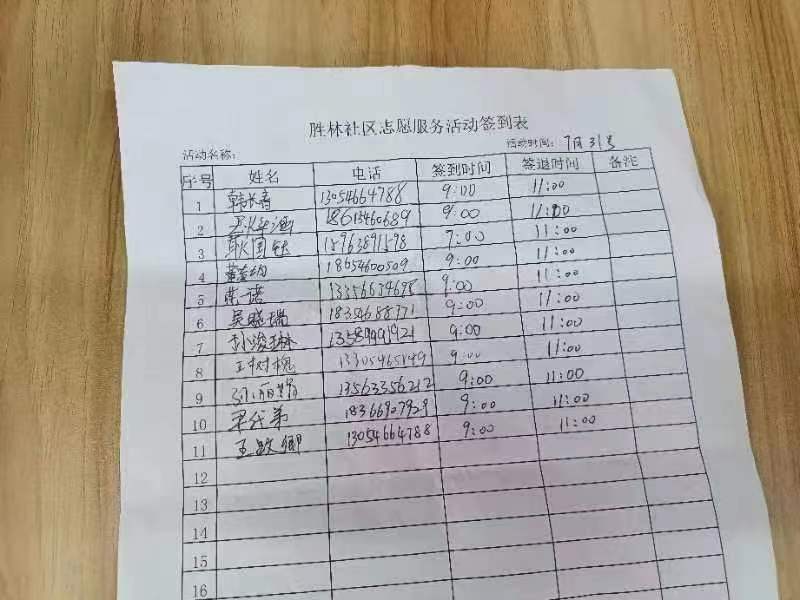 胜林社区志愿服务活动签到表
活动名称： 活动时间：7月31号
序号 姓名 电话 签到时间 签退时间 备注
1 韩长青 13054664788 9:00 11:00
2 18613460689 9:00 11:00
3 耿国钰 15963891598 9:00 11:00
4 18654600509 9:00 11:00
5 一诺 13356634698 9:00 11:00
6 吴晓瑞 18354688371 9:00 11:00
7 孙浚琳 13589991921 9:00 11:00
8 王树槐 13305465149 9:00 11:00
9 13563356212 9:00 11:00
10 弟 18366907929 9:00 11:00
11 王政卿 13054664788 9:00 11:00
12
13
14
15
16